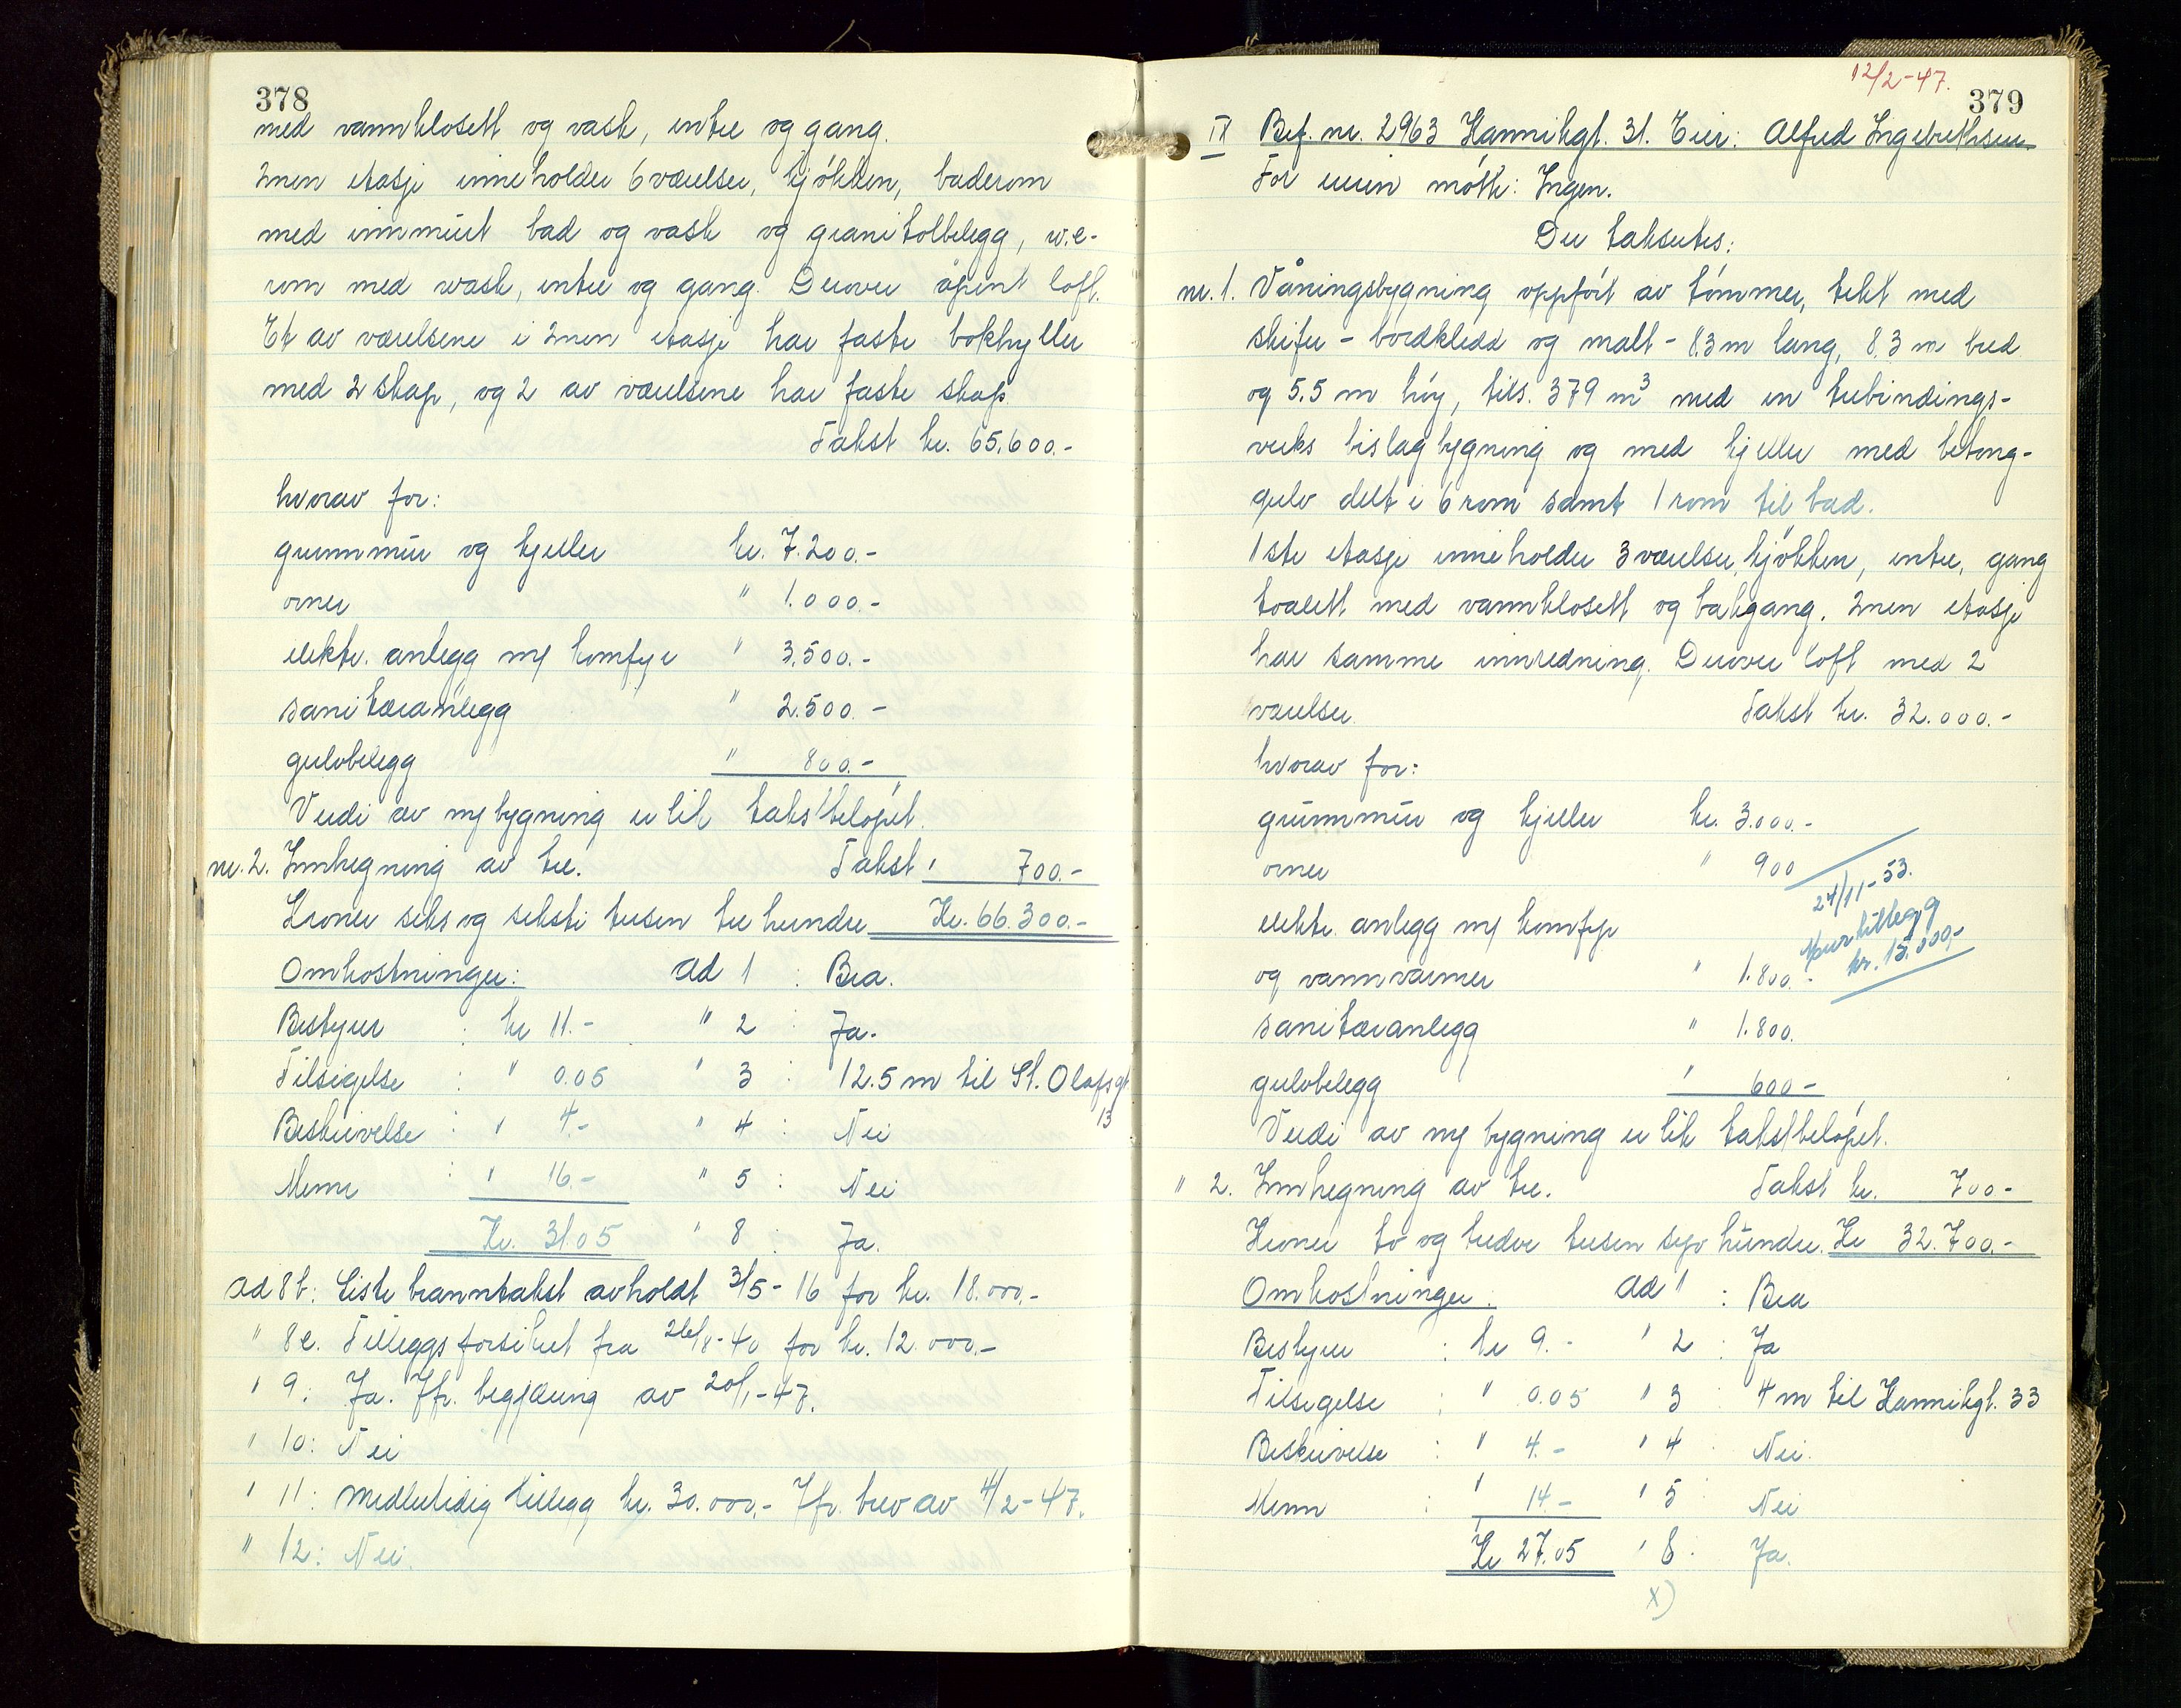 378
med vannklosett og vask, entre og gang.
2nen etasje inneholder 6 værelser, kjøkken, baderom
med innmurt bad og vask og granitolbelegg, w.c-
rom med vask, entre og gang. Derover åpent loft.
Et av værelsene i 2nen etasje har faste bokhyller
med 2 skap, og 2 av værelsene har faste skap
Takst kr. 65.600.-
hvorav for:
grunnmur og kjeller kr. 7.200.-
ovner " 1.000.-
elektr. anlegg m/ komfyr " 3.500.-
sanitæranlegg " 2.500.-
gulvbelegg " 800.-
Verdi av ny bygning er lik takstbeløpet.
nr. 2. Innhegning av tre. Takst " 700.-
Kroner seks og seksti tusen tre hundre Kr. 66.300.-
Omkostninger: ad 1 : Bra.
Bestyrer : kr 11.- " 2 : Ja.
Tilsigelse : " 0.05 " 3 : 12.5 m til St. Olafsgt
13
Beskrivelse : " 4.- " 4 : Nei
Menn : " 16.- " 5 : Nei
Kr. 31.05 " 8 : Ja.
ad 8b: Siste branntakst avholdt 3/5-16 for kr. 18.000.-
" 8c. Tilleggsforsikret fra 26/8-40 for kr. 12.000.-
" 9: Ja. Jfr. begjæring av 20/1-47.
" 10: Nei
" 11: Midlertidig tillegg kr. 30.000.- Jfr. brev av 4/2-47.
" 12: Nei.
12/2-47.
379
IX Bef. nr. 2963 Hannikgt. 31. Eier: Alfred Ingebrethsen.
For eieren møtte: Ingen.
Der takseres:
nr. 1. Våningsbygning oppført av tømmer, tekt med
skifer - bordkledd og malt - 8.3 m lang, 8.3 m bred
og 5.5 m høy, tils. 379 m³ med en trebindings-
verks bislagbygning og med kjeller med betong-
gulv delt i 6 rom samt 1 rom til bad.
1ste etasje inneholder 3 værelser, kjøkken, entre, gang
toalett med vannklosett og bakgang. 2nen etasje
har samme innredning. Derover loft med 2
værelser. Takst kr. 32.000.-
hvorav for:
grunnmur og kjeller kr. 3.000.-
ovner " 900
24/11-53.
elektr. anlegg m/ komfyr
kr. 15.000.-
og vannvarmer " 1.800.-
sanitæranlegg " 1.800.
gulvbelegg " 600-
Verdi av ny bygning er lik takstbeløpet.
" 2. Innhegning av tre. Takst kr. 700-
Kroner to og tredve tusen syv hundre. Kr 32.700.-
Omkostninger: ad 1 : Bra
Bestyrer : kr 9.- " 2 : Ja
Tilsigelse : " 0.05 " 3 : 4 m til Hannikgt. 33
Beskrivelse : " 4.- " 4 : Nei.
Menn : " 14.- " 5 : Nei
Kr 27.05 " 8 : Ja.
x)